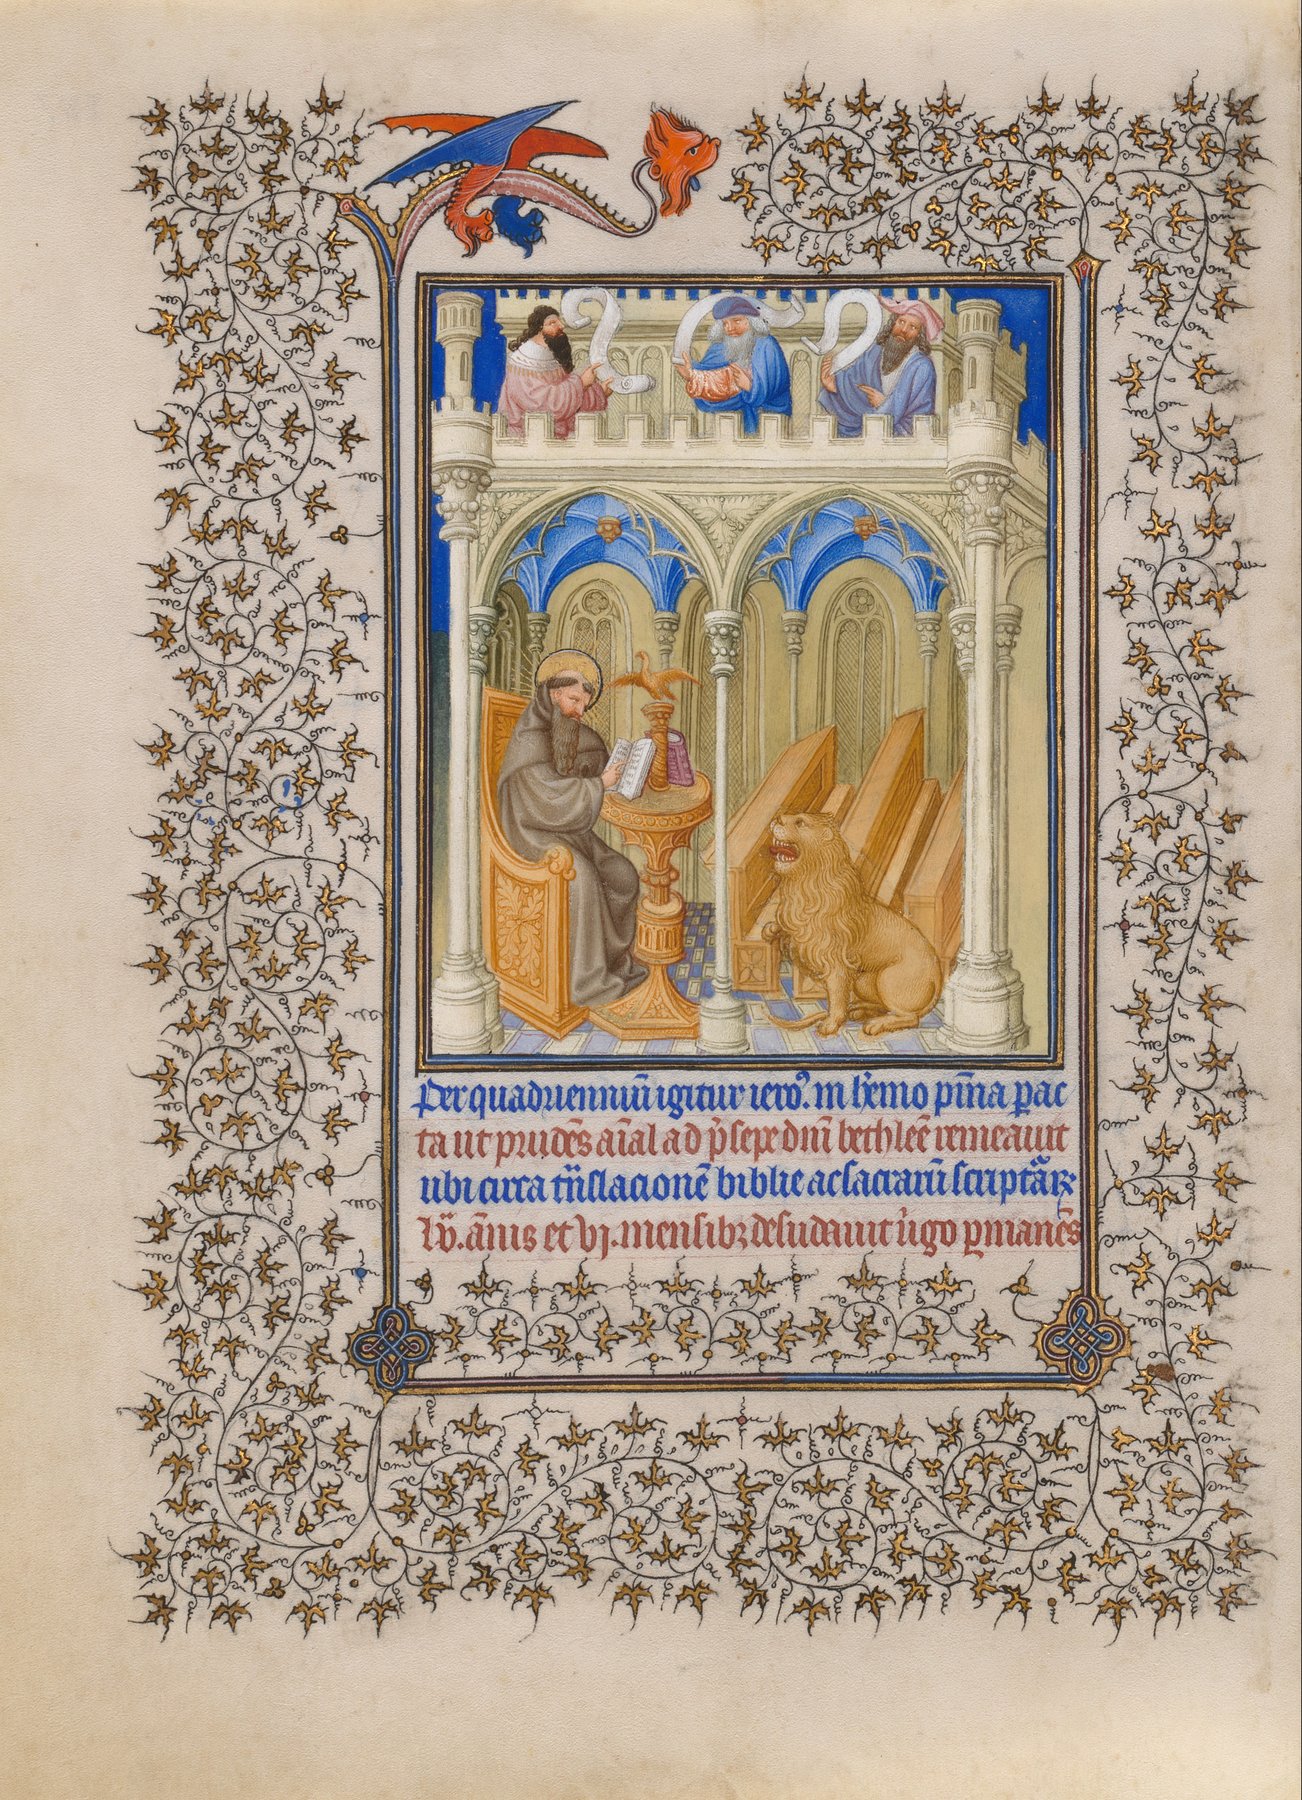 Per quadrienniū igitur iero⁹. in h̄emo pn̄īa p̲ac
ta ut prudēs aīal ad p̄sepe dn̄i bethleē remeavit
ubi circa trn̄slacionē biblie ac sacrarū scriptāꝝ
lv̄. ānis et vj. mensibꝫ desudavit v̄igo ꝑmanēs